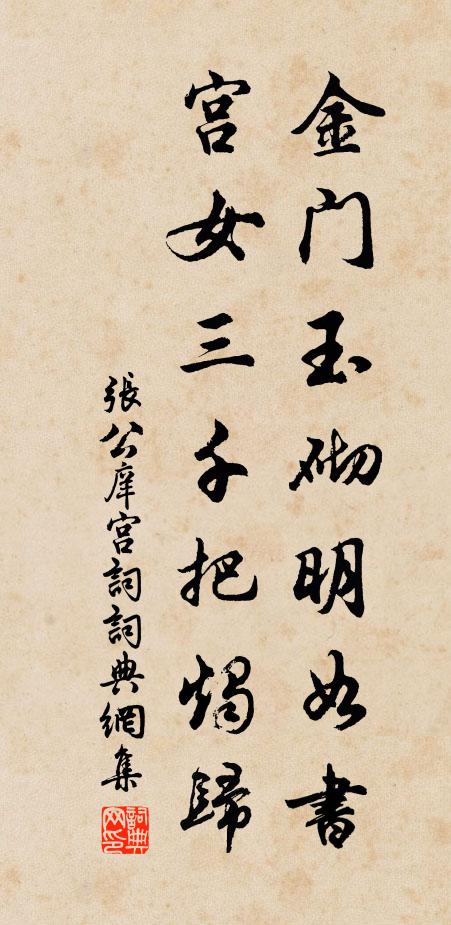 金门玉砌明如書
宫女三千把燭歸
張公庠宫詞詞典網集
詞典网印